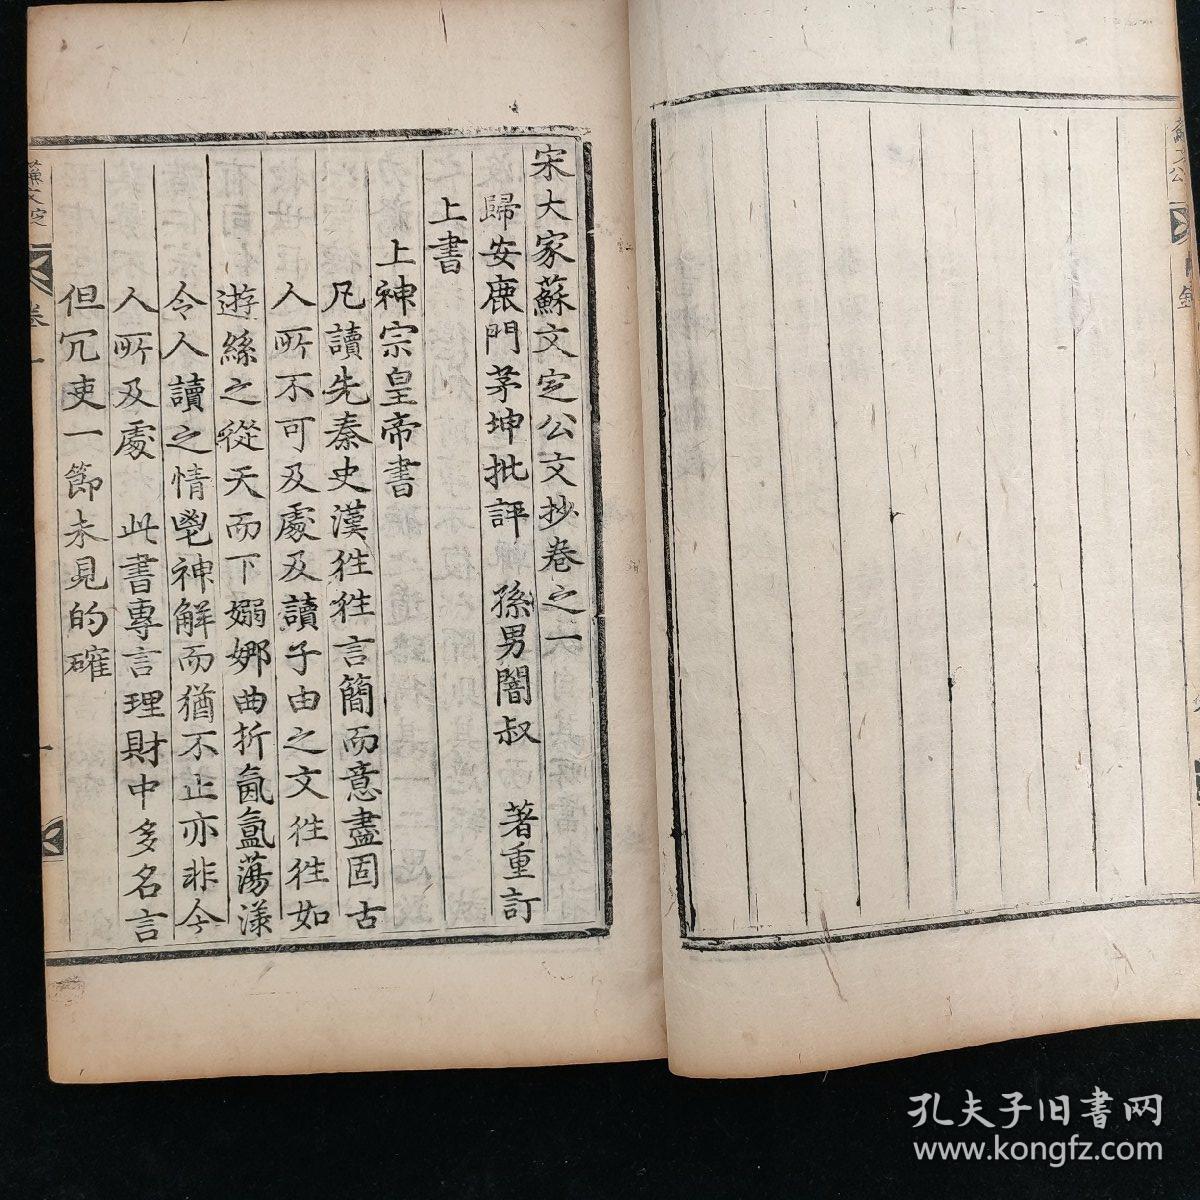 宋大家蘇文定公文抄卷之一
歸安鹿門茅坤批評 孫男闇叔 著重訂
上書
上神宗皇帝書
凡讀先秦史漢往往言簡而意盡固古
人所不可及處及讀子由之文往往如
遊絲之從天而下嫋娜曲折氤氳蕩漾
令人讀之情鬯神解而猶不止亦非今
人所及處 此書專言理財中多名言
但冗吏一節未見的確
蘇文定
卷一
一
孔夫子旧书网
www.kongfz.com